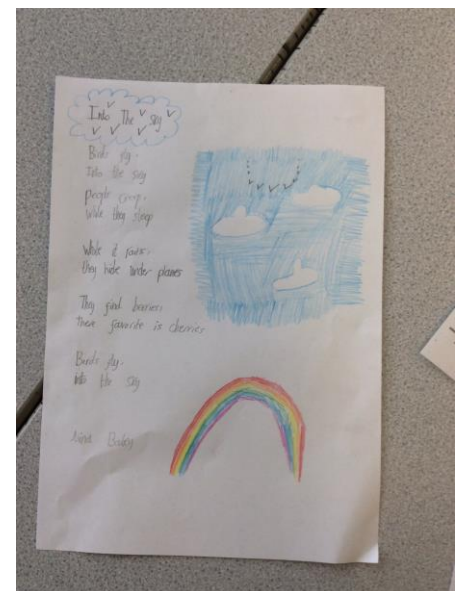 Into The sky
Birds fly.
Into the sky
people
While they sleep
While it
they hide under planes
They find berries.
There favorite is cherries
Birds fly.
into the sky